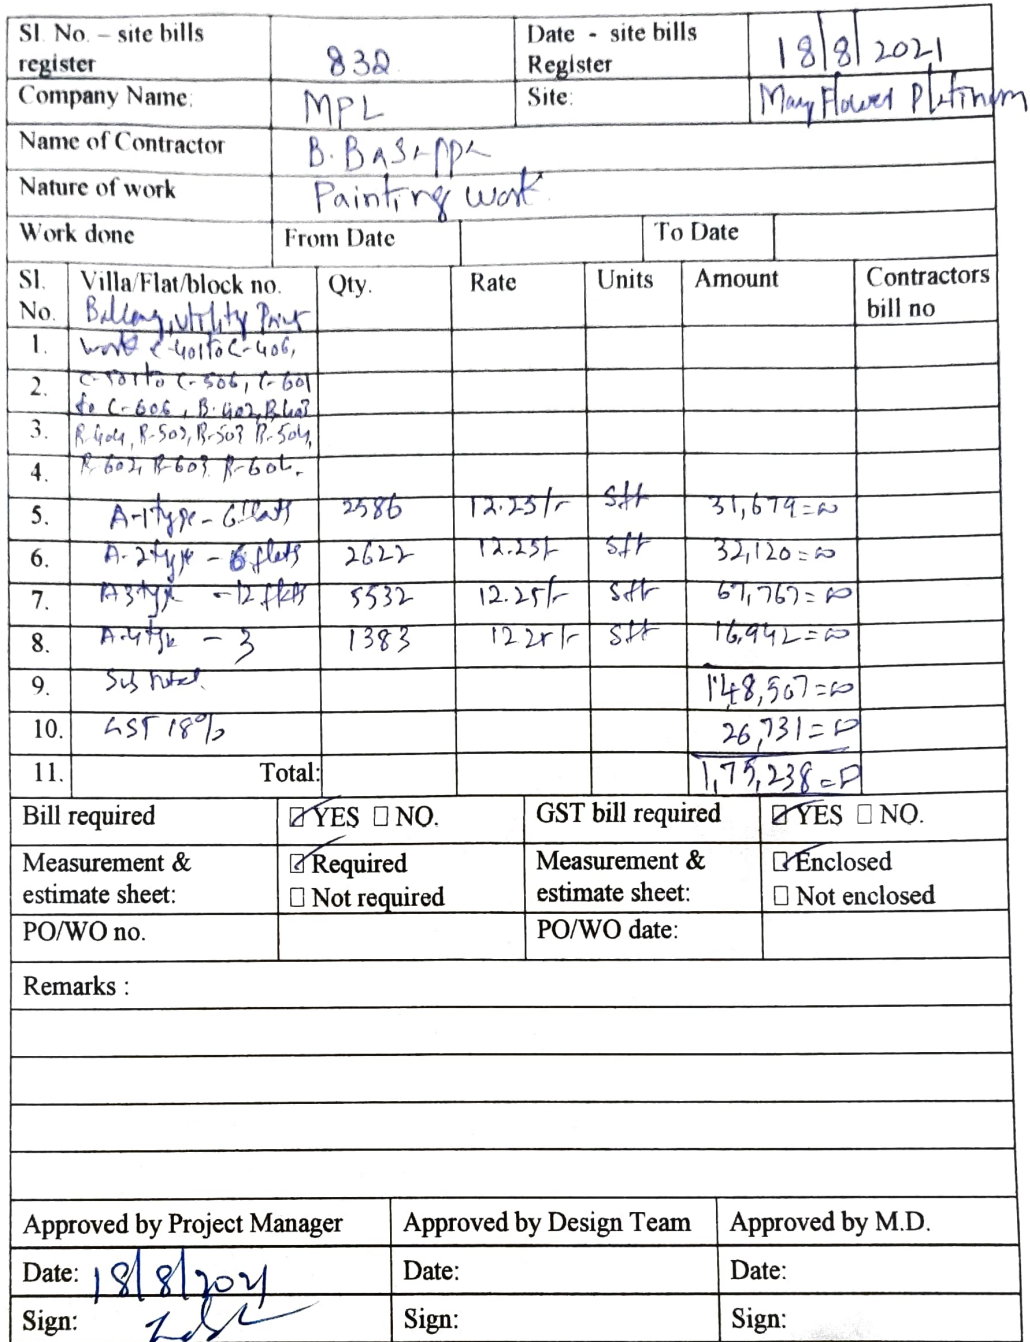 Sl. No. – site bills register 832 Date - site bills Register 18/8/2021
Company Name: MPL Site: May Flower Platinum
Name of Contractor B. BASAPPA
Nature of work Painting work
Work done From Date To Date
Sl. No. Villa/Flat/block no. Qty. Rate Units Amount Contractors bill no
Balcony, utility Paint
1. work C-401 to C-406,
2. C-501 to C-506, C-601
to C-606, B-402, B-403
3. B-404, B-502, B-503 B-504,
4. B-602, B-603 B-604.
5. A-1 type - 6 flats 2586 12.25/- Sft 31,679=00
6. A-2 type - 6 flats 2622 12.25/- Sft 32,120=00
7. A3 type - 12 flats 5532 12.25/- Sft 67,767=00
8. A-4 type - 3 1383 12.25/- Sft 16,942=00
9. Sub total. 148,507=00
10. GST 18% 26,731=00
11. Total: 1,75,238=00
Bill required ☑ YES ☐ NO. GST bill required ☑ YES ☐ NO.
Measurement & estimate sheet: ☑ Required ☐ Not required Measurement & estimate sheet: ☑ Enclosed ☐ Not enclosed
PO/WO no. PO/WO date:
Remarks :
Approved by Project Manager Approved by Design Team Approved by M.D.
Date: 18/8/2021 Date: Date:
Sign: Sign: Sign: